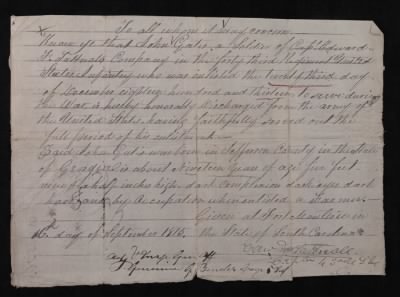 To all whom it may concern
Know ye that John Gates, a Soldier of Capt Edward
F. Tattnall Company in the forty third Regiment United
States Infantry who was inlisted the twenty third day
of December eighteen hundred and thirteen to serve during
the War, is hereby honorably discharged from the army of
the United States, having faithfully served out the
full period of his enlistment
Said John Gates was born in Jefferson County in the State
of Georgia is about Nineteen years of age five feet
nine & a half inches high dark complexion dark eyes dark
hair and by occupation when inlisted a Farmer
Given at Fort Moultrie in
day of September 1815. the State of South Carolina
Edw Tattnall
Capt